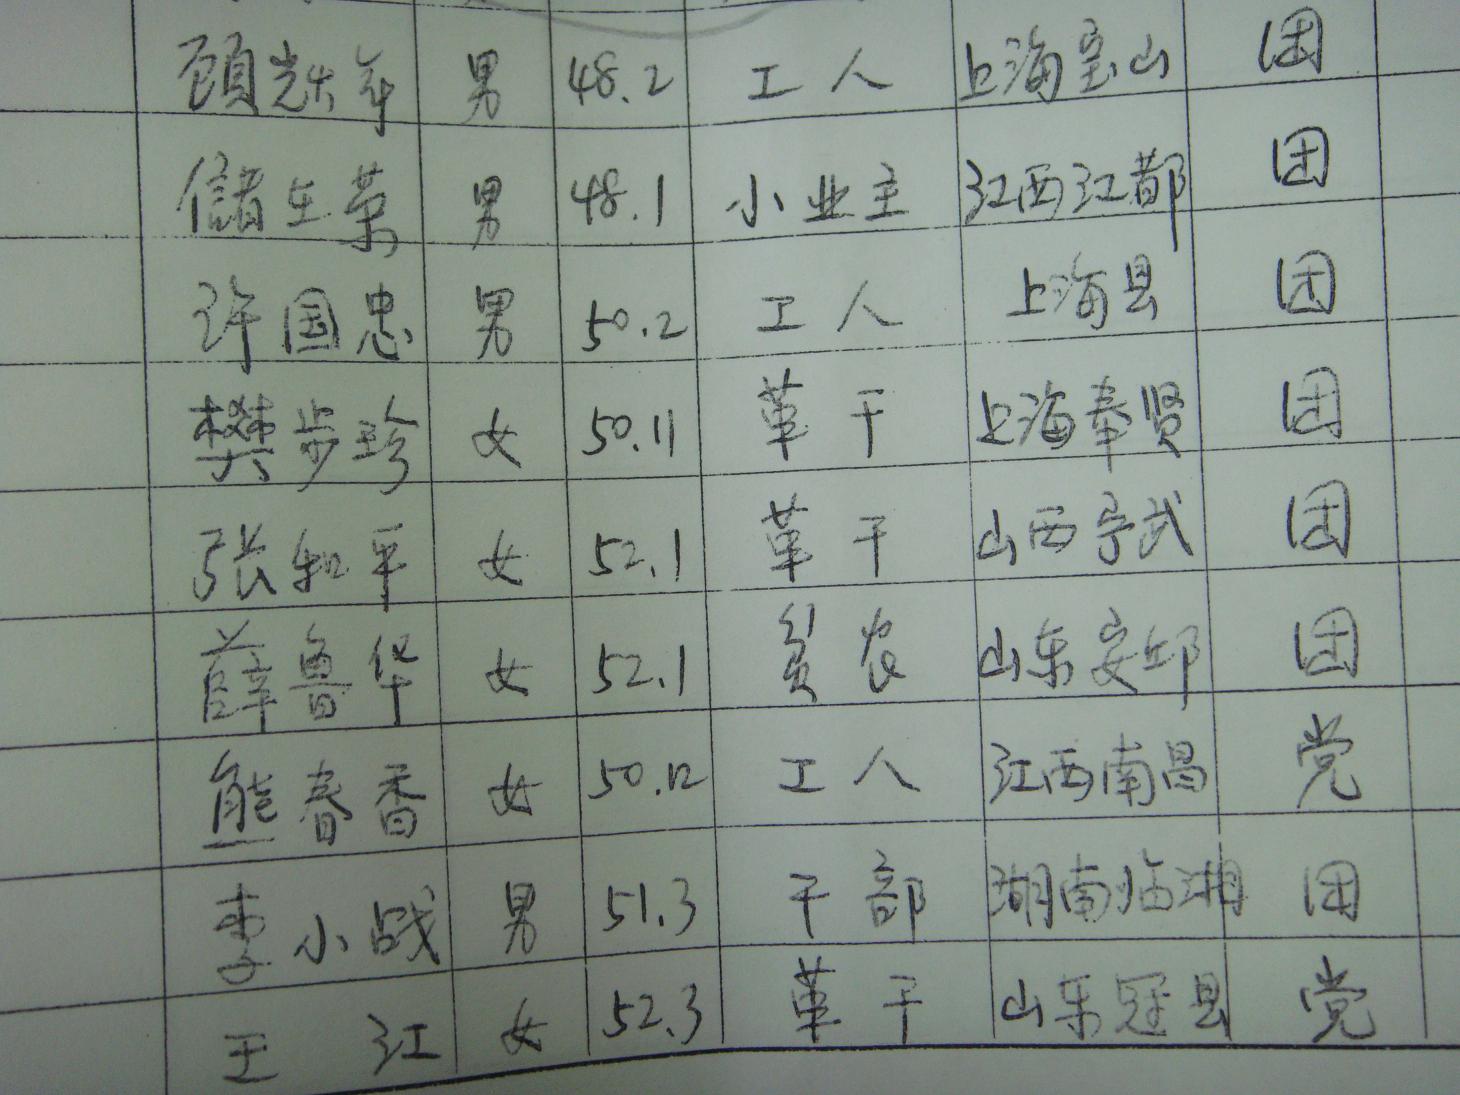 顾兆年 男 48.2 工人 上海宝山 团
儲生荣 男 48.1 小业主 江西江都 团
许国忠 男 50.2 工人 上海县 团
樊步珍 女 50.11 革干 上海奉贤 团
张和平 女 52.1 革干 山西宁武 团
薛鲁华 女 52.1 贫农 山东安邱 团
熊春香 女 50.12 工人 江西南昌 党
李小战 男 51.3 干部 湖南临湘 团
王江 女 52.3 革干 山东冠县 党